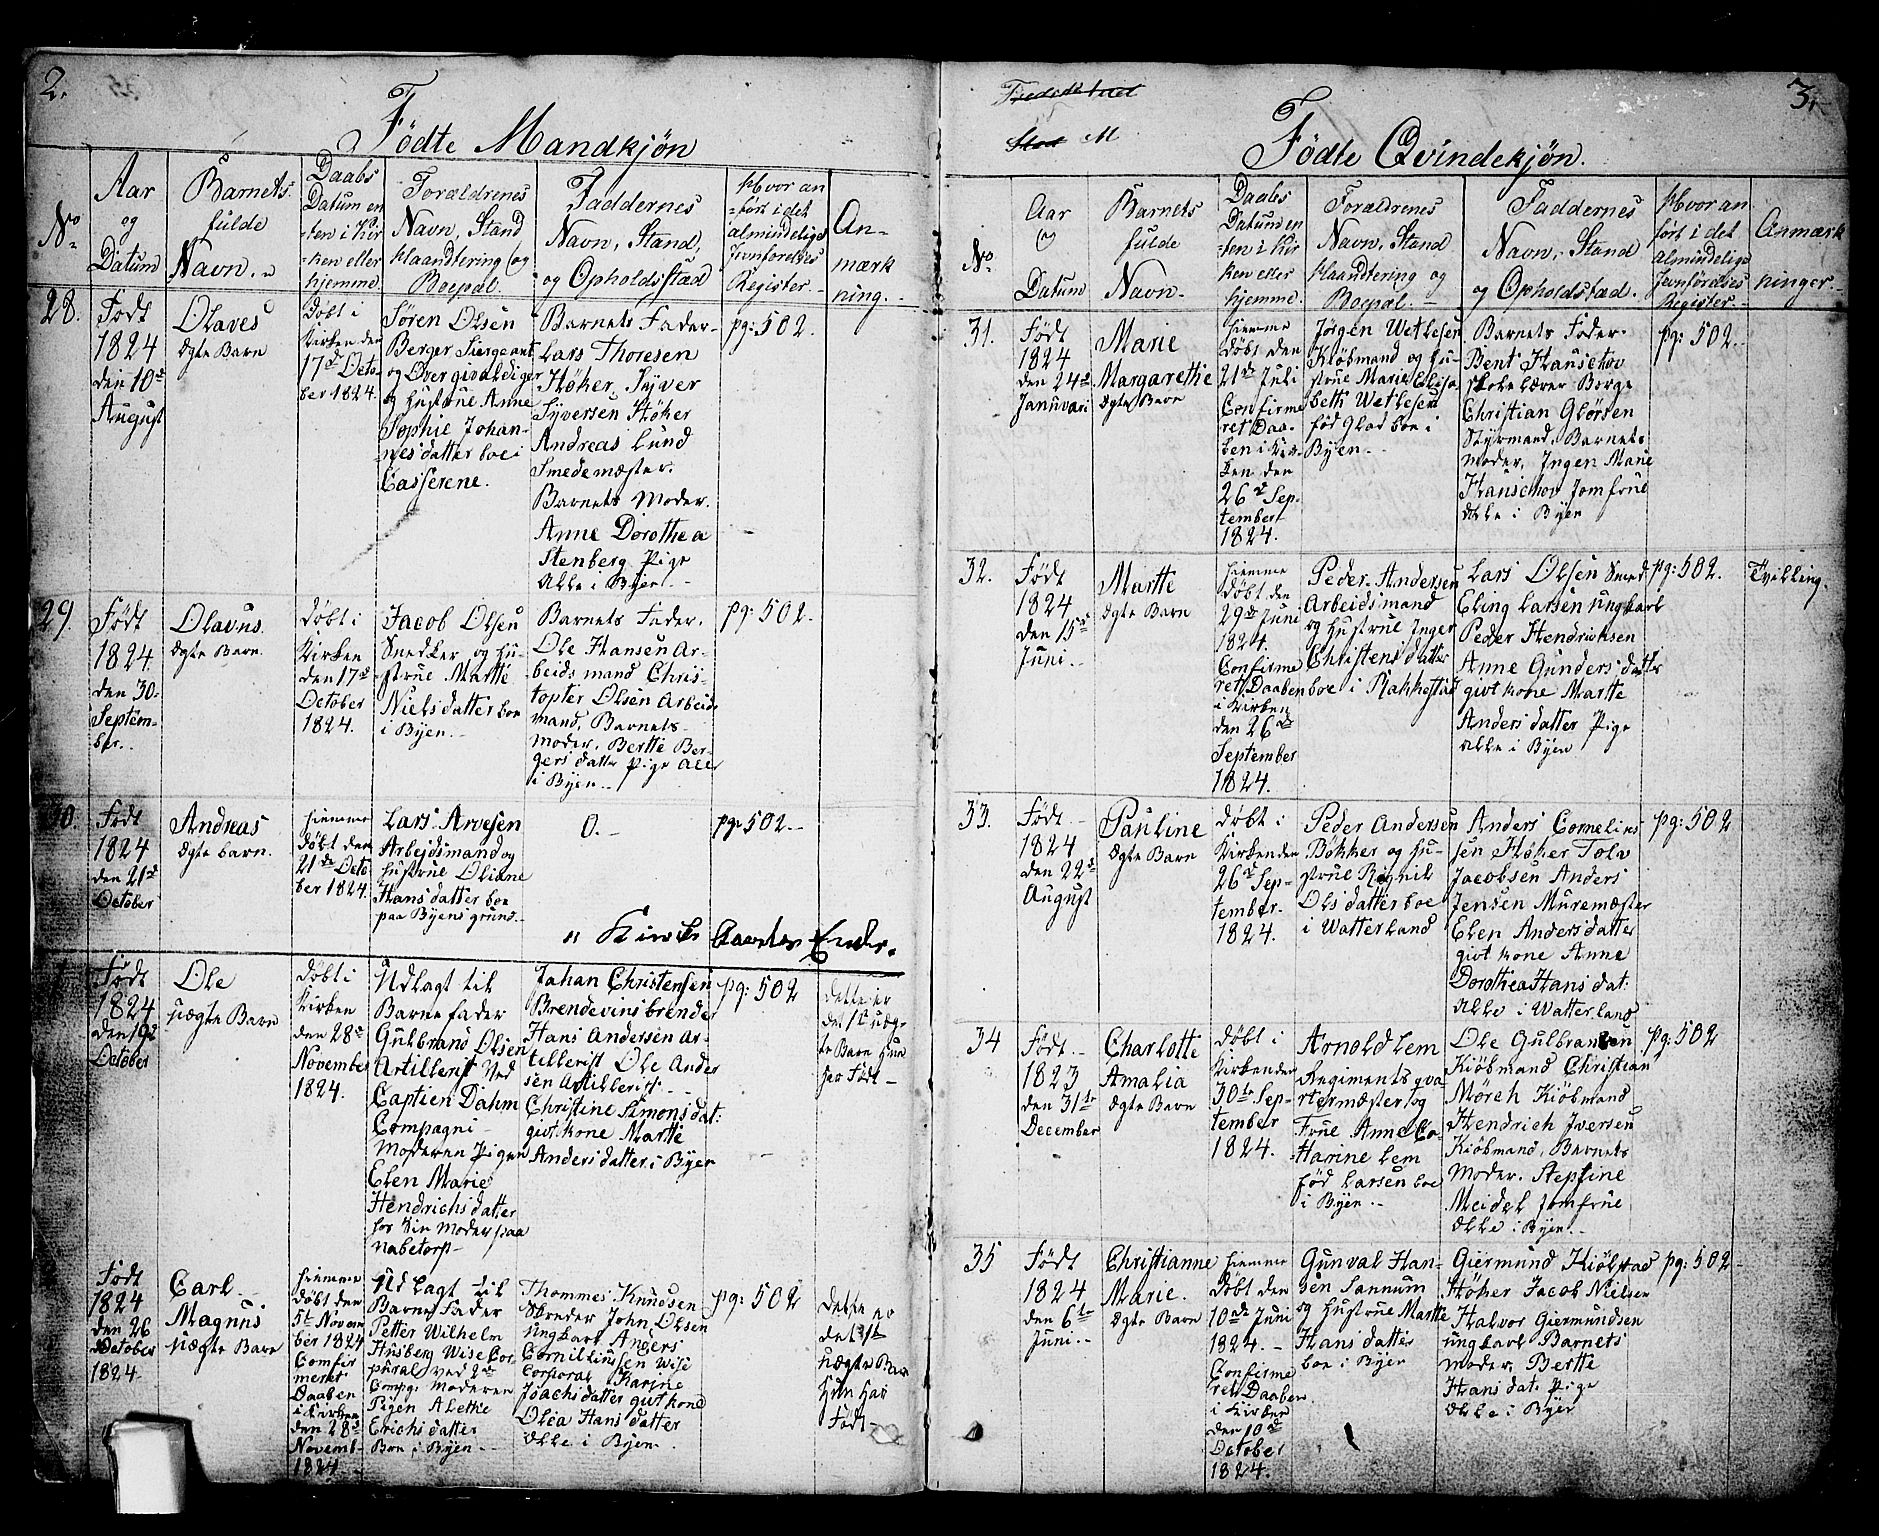 2.
Födte Mandkjøn
No
Aar
og
Datum
Barnets
fulde
Navn.
Daabs
Datum en
ten i Kir
ken eller
hjemme.
Forældrenes
Navn, Stand
Haandtering og
Boepæl.
Faddernes
Navn, Stand,
og Opholdsstæd
Hvor an
ført i det
almindelige
Jevnførelses
Register.
An-
mærk
ning.
28.
Født
1824
den 10de
August
Olaves
Ægte Barn
Døbt i
Kirken den
17de Octo
ber 1824.
Søren Olsen
Berger Siergeant
og Overgivaldiger
og Hustrue Anne
Sophie Johan-
nesdatter boe i
Casserene.
Barnets Fader.
Lars Thoresen
Høker, Syver
Syversen Høker
Andreas Lund
Smedemæster.
Barnets Moder.
Anne Dorothea
Stenberg Pige
Alle i Byen.
pg: 502.
29.
Født
1824.
den 30
Septem-
ber.
Olavus.
Ægte Barn.
Døbt i
Kirken
den 17de
October
1824.
Jacob Olsen
Snedker og Hu-
strue Marthe
Nielsdatter boe
i Byen.
Barnets Fader.
Ole Hansen Ar-
beidsmand Chris-
topfer Olsen Arbeids
mand, Barnets
Moder. Berthe Ber-
gersdatter Pige Alle
i Byen.
pg: 502.
30.
Født
1824
den 21de
October
Andreas
Ægte barn.
Hiemme
døbt den
21de Octo
ber 1824.
Lars Arvesen
Arbeidsmand og
Hustrue Oliane
Hansdatter boe
paa Byens grund.
0.
pg 502.
" Kirke Aaret Ender.
1
Født
1824
den 19de
October
Ole
Uægte Barn
Døbt i
Kirken
den 28de
November
1824.
Udlagt til
Barnefader
Gulbrand Olsen
Artillerist ved
Captien Dahm
Compagni
Moderen Pigen
Elen Marie
Hendrichsdatter
hos Kin Moder paa
Nabetorp
Johan Christensen
Brendevinsbrender
Hans Andersen Ar-
tellerist Ole Ander
sen Artillerist.
Christine Simonsdat:
givt kone Marthe
Andersdatter i Byen
pg: 502
Dette er
det 1te uæg-
te Barn Hun
har Født
Født
1824
den 26
October
1824
Carl
Magnus
Uægte Barn
Hiemme
døbt den
5te Novem
ber 1824
Comfir
meret
Daaben
i Kirken
den 28de
Novemb-
1824
Udlagt til
Barne Fader
Petter Wilhelm
Husberg Wise Cor-
pural ved 2de
Comp: Moderen
Pigen Alethe
Erichsdatter
Boe i Byen
Thommes Knudsen
Skreder John Olsen
ungkarl Anders
Corniliussen Wise
Corporal Karine
Joachsdatter givt kone
Olea Hansdatter
Alle i Byen.
pg: 502
Dette er
det 1te
uægte Barn
Hun Har
Født
3.
Fredrikstad
M
Födte Qvindekjøn.
No
Aar
og
Datum
Barnets
fulde
Navn
Daabs
Datum en
ten i Kir
ken eller
hjemme.
Forældrenes
Navn, Stand
Haandtering og
Boepæl.
Faddernes
Navn, Stand
og Opholdstæd.
Hvor an
ført i det
almindelige
Jevnførelses
Register.
Anmærk
ninger.
31.
Født
1824
den 24de
Januvari
Marie
Margarethe
Ægte Barn
Hiemme
Døbt den
21de Juli
Confirme
ret Daa-
ben i Kir-
ken den
26de Sep-
tember
1824.
Jørgen Wetlesen
Kiøbmand og Hu-
strue Marie Elisa
beth Wetlesen
fød Glad boe i
Byen.
Barnets Fader.
Bent Hanschov
Skolelærer Borge
Christian Glörsen
Styrmand. Barnets
Moder. Ingen Marie
Hanschov Jomfrue
Alle i Byen
pg: 502.
32.
Født
1824.
den 15de
Juni.
Marthe
Ægte Barn
Hiemme
Døbt den
29de Juni
1824.
Confirme
ret Daaben
i Kirken
den 26de
September
1824.
Peder Andersen
Arbeidsmand
og Hustrue Inger
Christensdatter
boe i Rakkestad
Lars Olsen Smed
Eling Larsen ungkarl
Peder Hendrichsen
Anne Gundersdatter
givt kone Marthe
Andersdatter Pige
Alle i Byen
pg: 502.
Tvilling.
33.
Født
1824
den 22de
August
Pauline
Ægte Barn
Døbt i
Kirken den
26de Sep-
tember.
1824.
Peder Andersen
Bøkker og Hu-
strue Rignil
Olsdatter boe
i Watterland
Anders Cornelius
sen Høker Tolv
Jacobsen Anders
Jensen Muremæster
Elen Andersdatter
givt kone Anne
Dorothea Hansdat:
Alle i Watterland
pg: 502
34
Født
1823
den 31te
December
Charlotte
Amalia
Ægte Barn
Døbt i
Kirken den
30te Sep-
tember
1824.
Arnold Lem
Regiments qva-
rtermæster og
Frue Anne Ca-
tarine Lem
fød Larsen boe
i Byen
Ole Gulbransen
Kiøbmand Christian
Mørch Kiøbmand
Hendrich Iversen
Kiøbmand, Barnets
Moder. Stepfine
Meidel Jomfrue
Alle i Byen.
pg: 502
35
Født
1824
den 6te
Juni.
Christianne
Marie.
Ægte Barn
Hiemme
Døbt den
10de Juni
1824.
Confirme
ret Daaben
i Kirken
den 10de
October
1824.
Gunval Han-
sen Sannum
og Hustrue Marthe
Hansdatter
boe i Byen
Giermund Kiølstad
Høker Jacob Nielsen
Halvor Giermundsen
ungkarl Barnets
Moder, Berthe
Hansdat. Pige
Alle i Byen
pg: 502